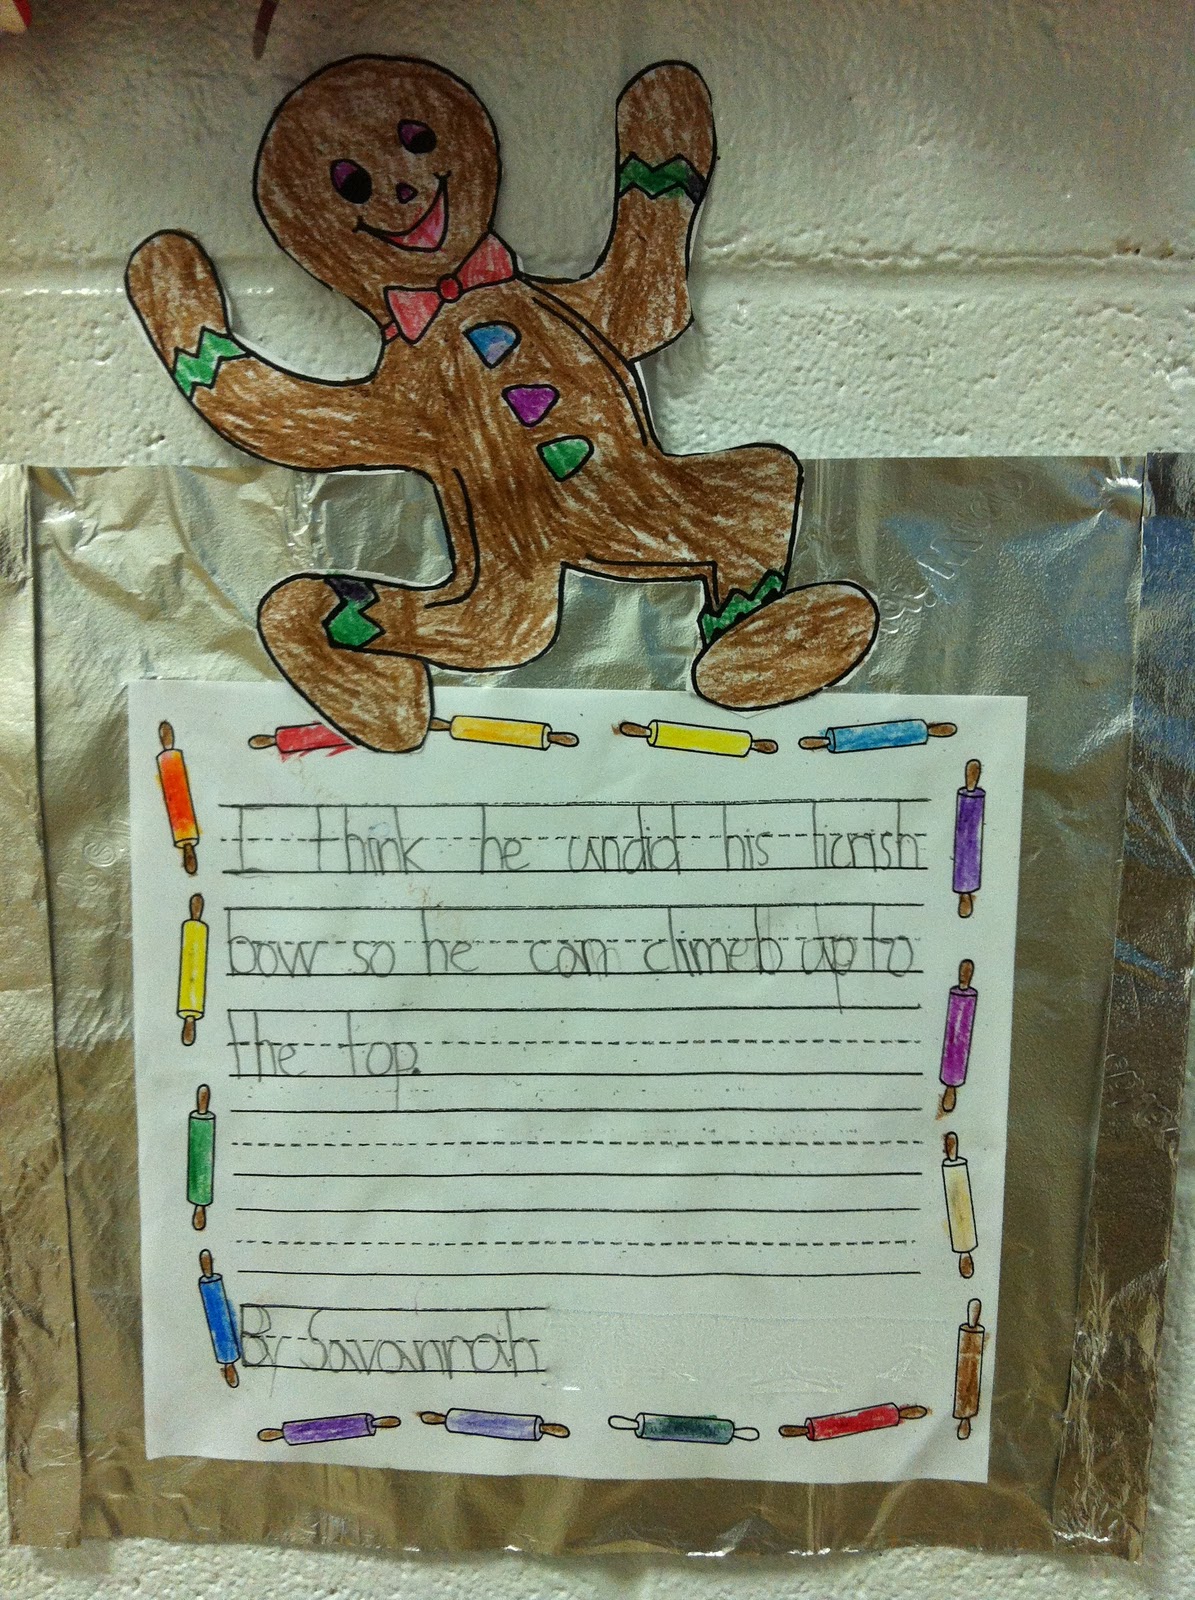 I think he undid his licrish
bow so he can climeb up to
the top.
By Savannah